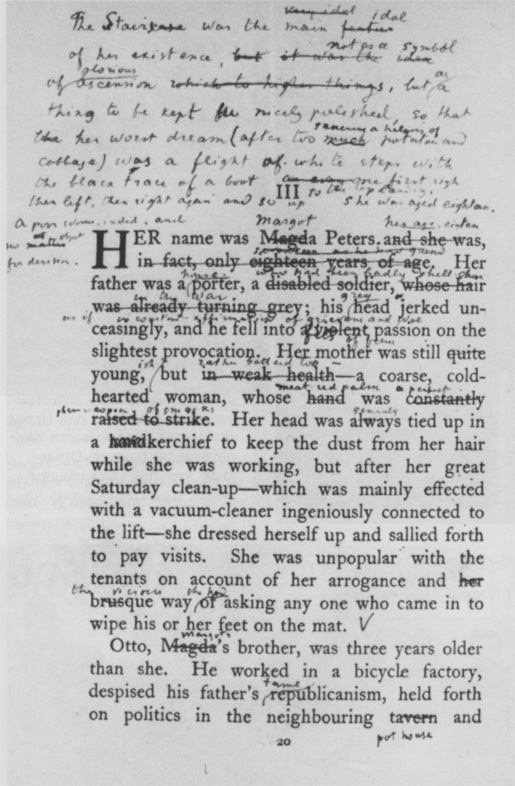 idol
The Staircase was the main feature
not as a symbol
of her existence, but it was the
glorious
of ascension which to higher things, but as a
thing to be kept nicely polished, so that
her worst dream (after too much potatoes and
a helping of
cabbage) was a flight of white steps with
the black trace of a boot first right
then left, then right again and so up to the top landing.
III
She was aged eighteen.
a poor woman indeed, and
no object
for derision.
Margot
HER name was Magda Peters and she was,
in fact, only eighteen years of age. Her
house who had been badly shell-shocked
father was a porter, a disabled soldier, whose hair
in the war
grey
was already turning grey; his head jerked un-
as if in constant affirmation of grievance and woe
ceasingly, and he fell into a violent passion on the
fits of
slightest provocation. Her mother was still quite
ish rather battered too
young, but in weak health—a coarse, cold-
red palm a perfect
hearted woman, whose hand was constantly
of smacks
raised to strike. Her head was always tied up in
generally
a handkerchief to keep the dust from her hair
while she was working, but after her great
Saturday clean-up—which was mainly effected
with a vacuum-cleaner ingeniously connected to
the lift—she dressed herself up and sallied forth
to pay visits. She was unpopular with the
tenants on account of her arrogance and her
the vicious she had
brusque way of asking any one who came in to
wipe his or her feet on the mat.
Margot's
Otto, Magda's brother, was three years older
than she. He worked in a bicycle factory,
tame
despised his father's republicanism, held forth
on politics in the neighbouring tavern and
pot house
20